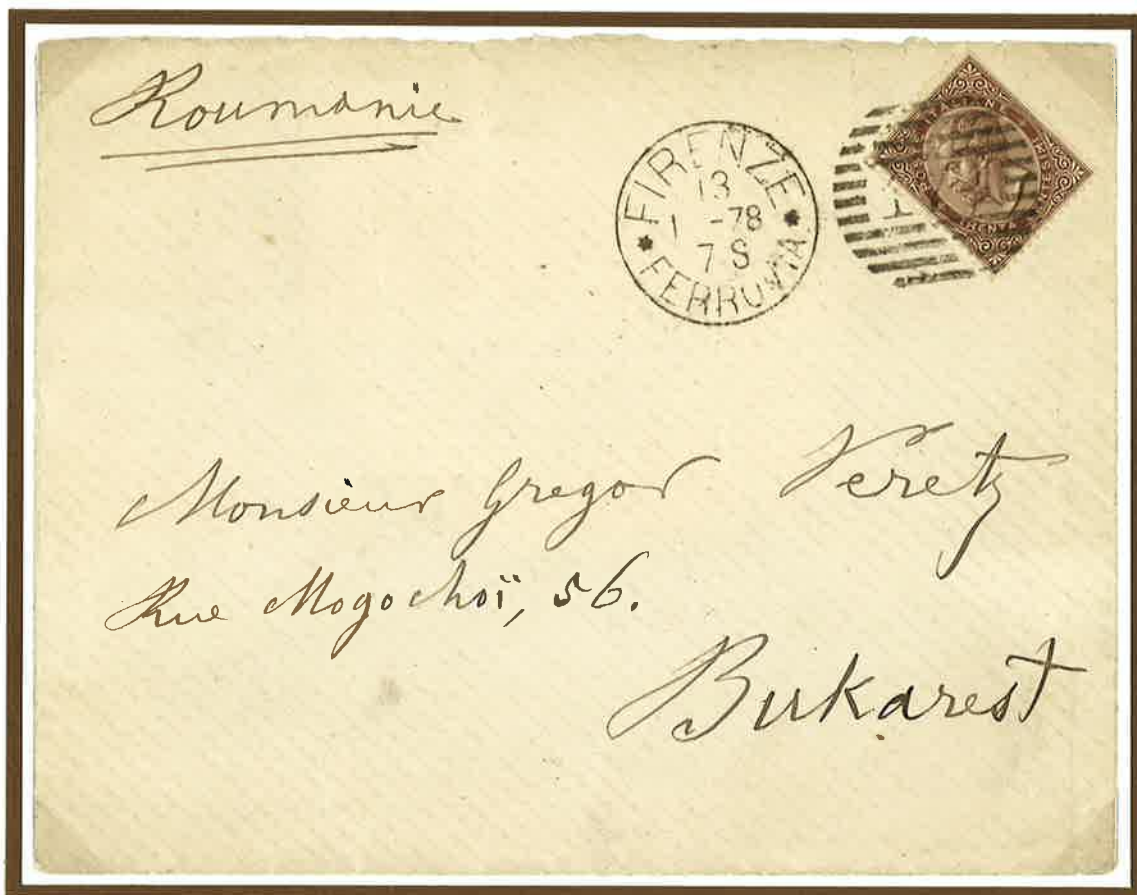 Roumanie
FIRENZE
13
1 -78
7 S
* FERROVIA *
Monsieur Gregor Veretz
Rue Mogochoï, 56.
Bukarest